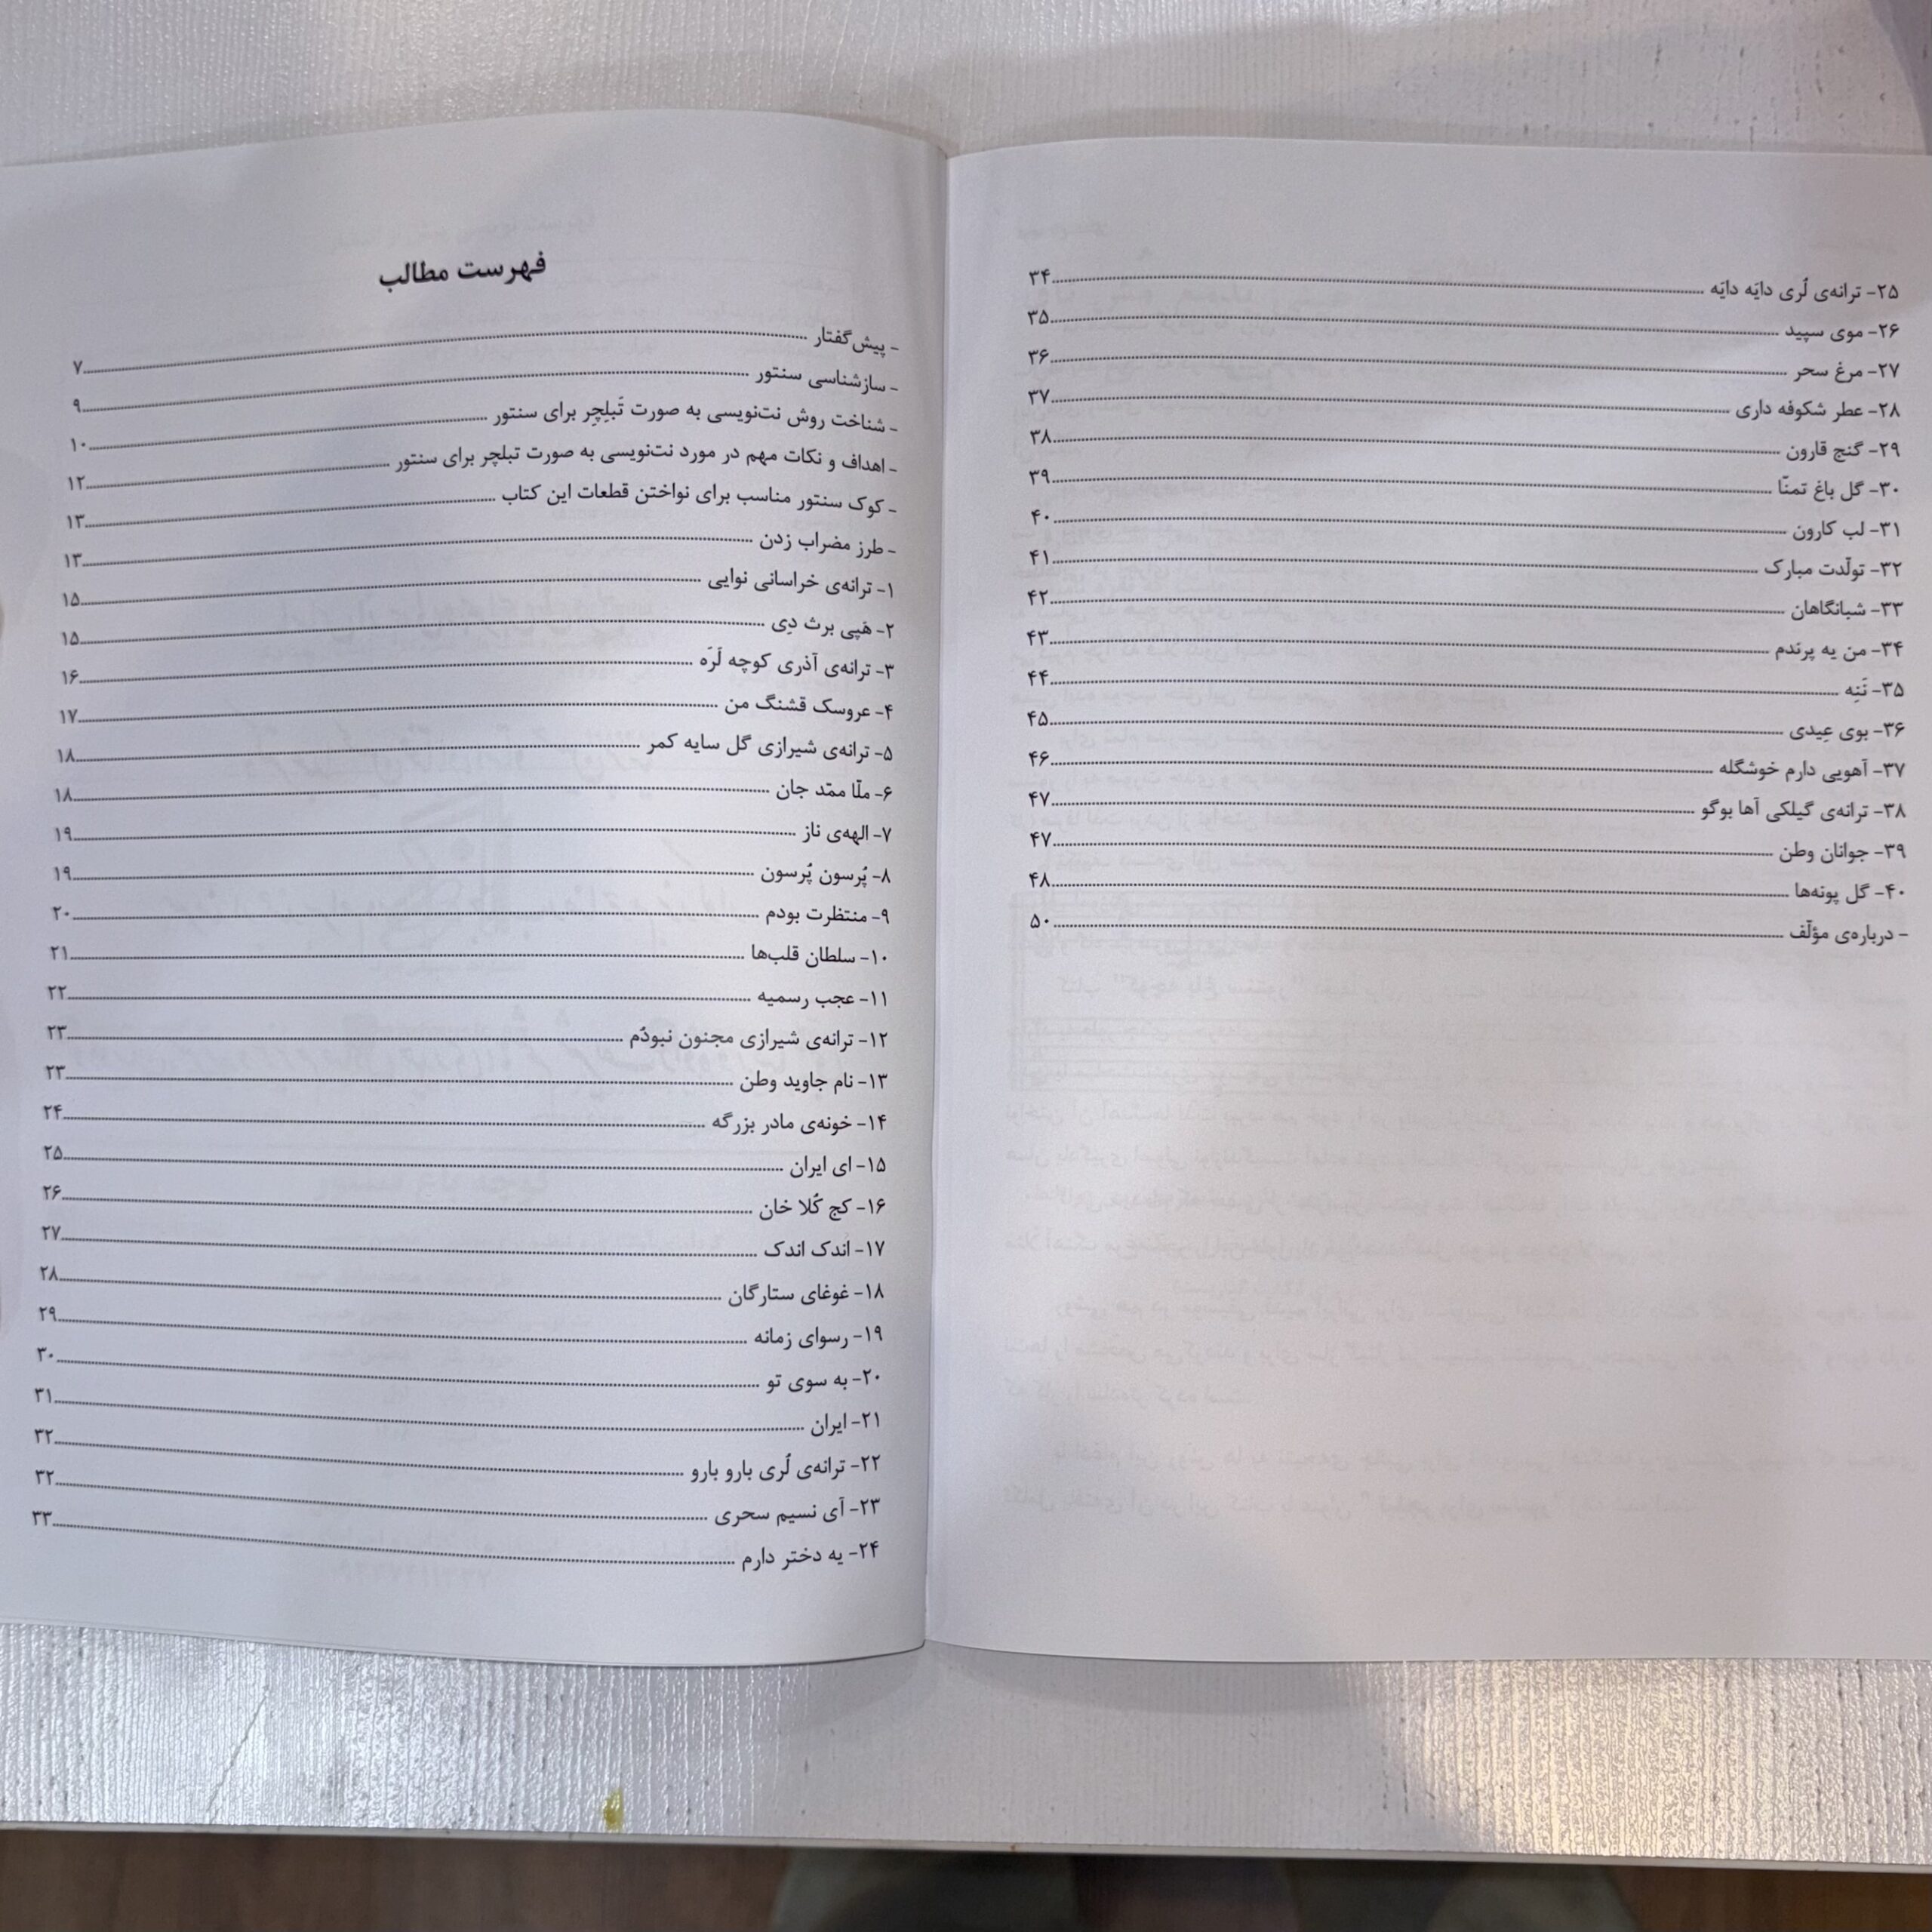 فهرست مطالب
- پیش‌گفتار ........ ۷
- سازشناسی سنتور ........ ۹
- شناخت روش نت‌نویسی به صورت تَبلِچِر برای سنتور ........ ۱۰
- اهداف و نکات مهم در مورد نت‌نویسی به صورت تبلچر برای سنتور ........ ۱۲
- کوک سنتور مناسب برای نواختن قطعات این کتاب ........ ۱۳
- طرز مضراب زدن ........ ۱۳
۱- ترانه‌ی خراسانی نوایی ........ ۱۵
۲- هَپی برث دِی ........ ۱۵
۳- ترانه‌ی آذری کوچه لَرَه ........ ۱۶
۴- عروسک قشنگ من ........ ۱۷
۵- ترانه‌ی شیرازی گل سایه کمر ........ ۱۸
۶- ملّا ممّد جان ........ ۱۸
۷- الهه‌ی ناز ........ ۱۹
۸- پُرسون پُرسون ........ ۱۹
۹- منتظرت بودم ........ ۲۰
۱۰- سلطان قلب‌ها ........ ۲۱
۱۱- عجب رسمیه ........ ۲۲
۱۲- ترانه‌ی شیرازی مجنون نبودُم ........ ۲۳
۱۳- نام جاوید وطن ........ ۲۳
۱۴- خونه‌ی مادر بزرگه ........ ۲۴
۱۵- ای ایران ........ ۲۵
۱۶- کج کُلا خان ........ ۲۶
۱۷- اندک اندک ........ ۲۷
۱۸- غوغای ستارگان ........ ۲۸
۱۹- رسوای زمانه ........ ۲۹
۲۰- به سوی تو ........ ۳۰
۲۱- ایران ........ ۳۱
۲۲- ترانه‌ی لُری بارو بارو ........ ۳۲
۲۳- آی نسیم سحری ........ ۳۲
۲۴- یه دختر دارم ........ ۳۳
۲۵- ترانه‌ی لُری دایَه دایَه ........ ۳۴
۲۶- موی سپید ........ ۳۵
۲۷- مرغ سحر ........ ۳۶
۲۸- عطر شکوفه داری ........ ۳۷
۲۹- گنج قارون ........ ۳۸
۳۰- گل باغ تمنّا ........ ۳۹
۳۱- لب کارون ........ ۴۰
۳۲- تولّدت مبارک ........ ۴۱
۳۳- شبانگاهان ........ ۴۲
۳۴- من یه پرندم ........ ۴۳
۳۵- نَنِه ........ ۴۴
۳۶- بوی عِیدی ........ ۴۵
۳۷- آهویی دارم خوشگله ........ ۴۶
۳۸- ترانه‌ی گیلکی آها بوگو ........ ۴۷
۳۹- جوانان وطن ........ ۴۷
۴۰- گل پونه‌ها ........ ۴۸
- درباره‌ی مؤلّف ........ ۵۰